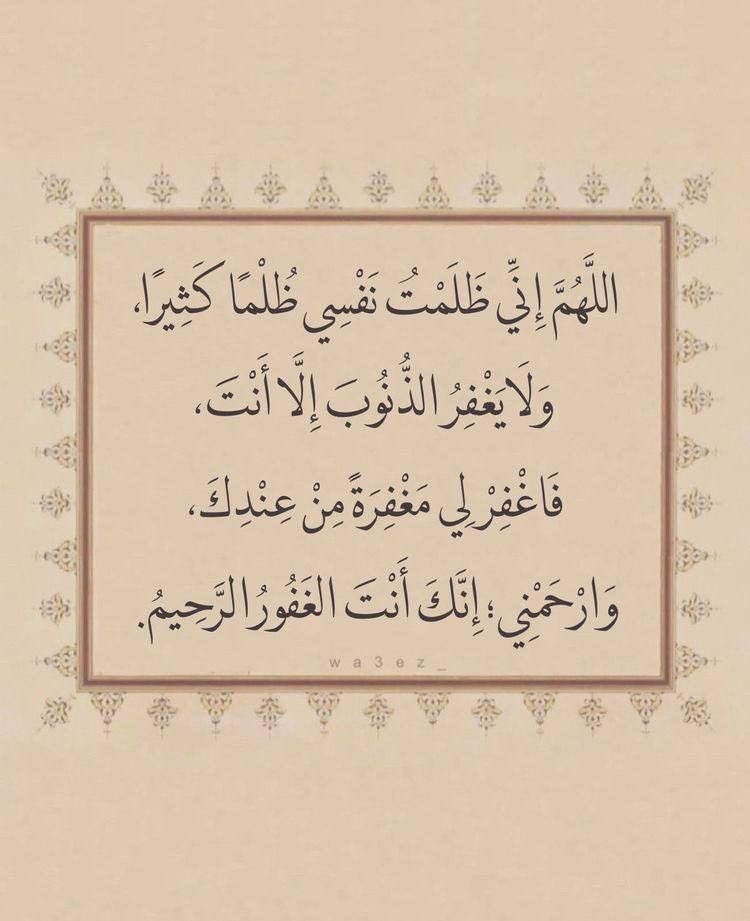 اللَّهُمَّ إِنِّي ظَلَمْتُ نَفْسِي ظُلْمًا كَثِيرًا،
وَلَا يَغْفِرُ الذُّنُوبَ إِلَّا أَنْتَ،
فَاغْفِرْ لِي مَغْفِرَةً مِنْ عِنْدِكَ،
وَارْحَمْنِي؛ إِنَّكَ أَنْتَ الغَفُورُ الرَّحِيمُ.
wa3ez_